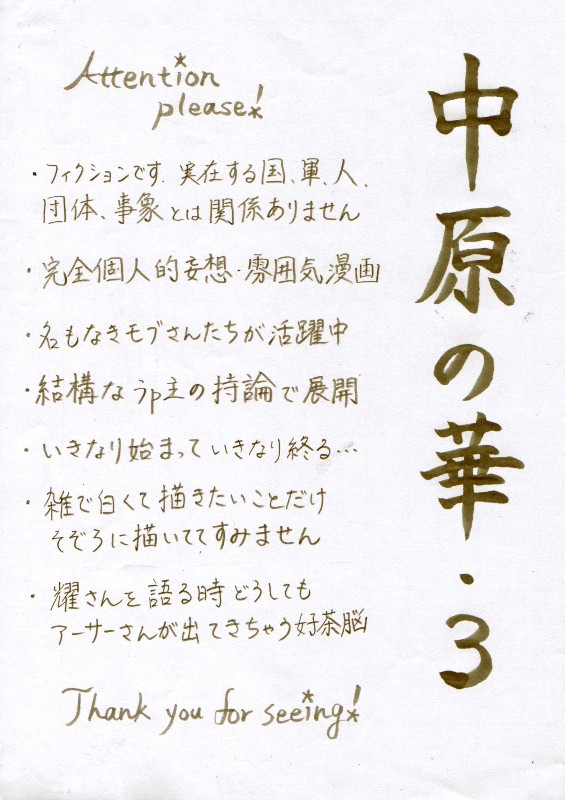 中原の華・3
Attention
please!
・フィクションです.実在する国、軍、人、
団体、事象とは関係ありません
・完全個人的妄想・雰囲気漫画
・名もなきモブさんたちが活躍中
・結構なうp主の持論で展開
・いきなり始まっていきなり終る…
・雑で白くて描きたいことだけ
そぞろに描いててすみません
・耀さんを語る時どうしても
アーサーさんが出てきちゃう好茶脳
Thank you for seeing!